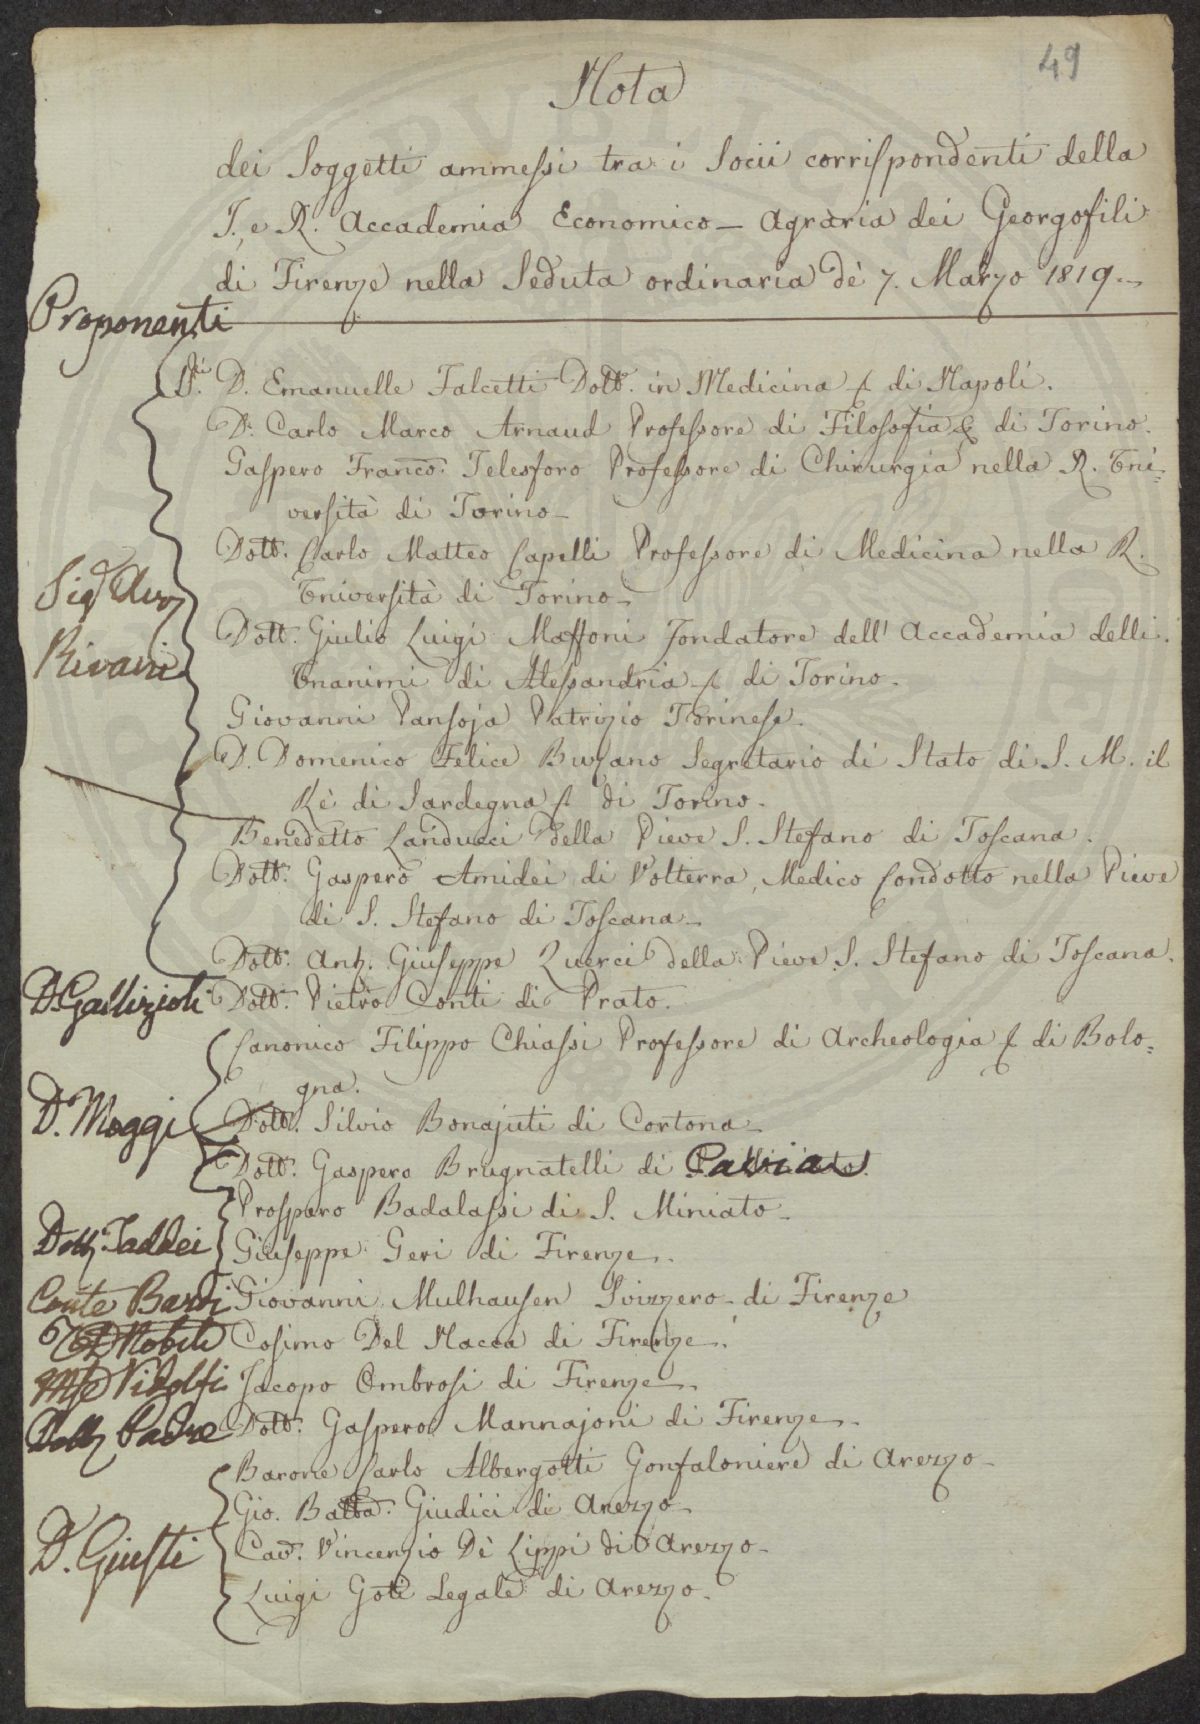 49
Nota
dei Soggetti ammessi tra i Socii corrispondenti della
I. e R. Accademia Economico-Agraria dei Georgofili
di Firenze nella Seduta ordinaria dè 7. Marzo 1819.
Proponenti
S.ri D. Emanuelle Falcetti Dott. in Medicina di Napoli.
D. Carlo Marco Arnaud Professore di Filosofia & di Torino.
Gaspero Franco. Telesforo Professore di Chirurgia nella R. Uni=
versità di Torino-
Dott. Carlo Matteo Capelli Professore di Medicina nella R.
Università di Torino-
Sig.
Dott. Giulio Luigi Maffoni Fondatore dell' Accademia delli
Unanimi di Alessandria di Torino-
Giovanni Pansoja Patrizio Torinese.
D. Domenico Felice Buzano Segretario di Stato di S. M. il
Rè di Sardegna di Torino-
Benedetto Landucci della Pieve S. Stefano di Toscana.
Dott. Gaspero Amidei di Volterra, Medico Condotto nella Pieve
di S. Stefano di Toscana-
Dott. Ant. Giuseppe Querci della Pieve S. Stefano di Toscana.
D. Gallizioli Dott. Pietro Conti di Prato.
Canonico Filippo Chiassi Professore di Archeologia di Bolo=
gna.
D. Moggi Dott. Silvio Bonajuti di Cortona-
Dott. Gaspero Brugnatelli di Pavia
Prospero Badalassi di S. Miniato-
Dott. Taddei Giuseppe Geri di Firenze.
Conte Bardi Giovanni Mulhausen Svizzero di Firenze
Cosimo Del Nacca di Firenze.
Ridolfi Jacopo Ombrosi di Firenze.
Dott. Gaspero Mannajoni di Firenze.
Barone Carlo Albergotti Gonfaloniere di Arezzo-
Gio. Batta. Giudici di Arezzo-
D. Giusti Cav. Vincenzio Dè Lippi di Arezzo-
Luigi Goti Legale di Arezzo.